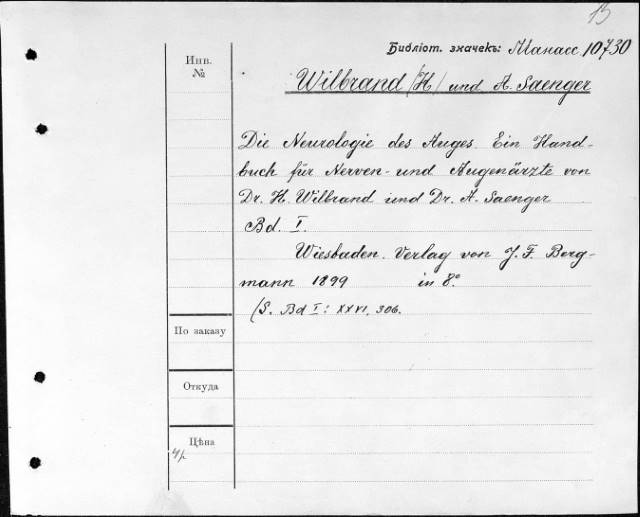 13
Библіот. значекъ: Манасс. 10730
Инв.
№
Wilbrand (H.) und A. Saenger
Die Neurologie des Auges. Ein Hand-
buch für Nerven- und Augenärzte von
Dr. H. Wilbrand und Dr. A. Saenger
Bd. I.
Wiesbaden. Verlag von J. F. Berg-
mann 1899 in 8°.
(S. Bd I: XXVI, 306.
По заказу
Откуда
Цѣна